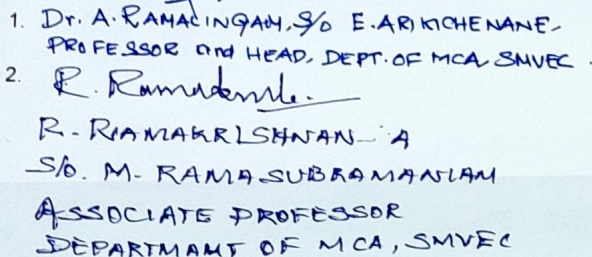 1. Dr. A. RAMALINGAM, S/o E. ARIKICHENANE-
PROFESSOR and HEAD, DEPT. OF MCA SMVEC.
2.
R. RAMAKRISHNAN
S/o. M. RAMASUBRAMANIAM
ASSOCIATE PROFESSOR
DEPARTMAMT OF MCA, SMVEC